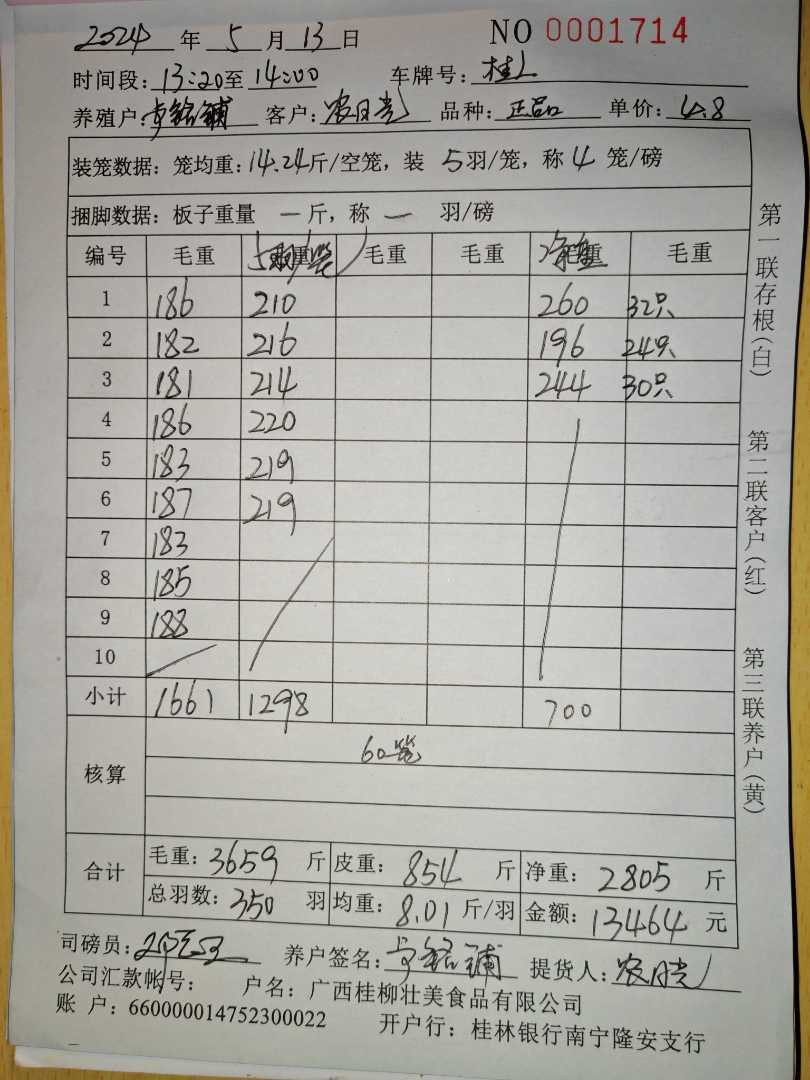 2024 年 5 月 13 日 NO 0001714
时间段: 13:20 至 14:00 车牌号: 桂L
养殖户: 铭铺 客户: 农日光 品种: 正品 单价: 4.8
装笼数据: 笼均重: 14.24 斤/空笼, 装 5 羽/笼, 称 4 笼/磅
捆脚数据: 板子重量 一 斤, 称 一 羽/磅
编号 毛重 5羽/笼 毛重 毛重 净重 毛重
1 186 210 260 32只
2 182 216 196 24只
3 181 214 244 30只
4 186 220
5 183 219
6 187 219
7 183
8 185
9 188
10
小计 1661 1298 700
核算 60笼
合计 毛重: 3659 斤 皮重: 854 斤 净重: 2805 斤
总羽数: 350 羽 均重: 8.01 斤/羽 金额: 13464 元
司磅员: 养户签名: 铭铺 提货人: 农日光
公司汇款帐号: 户名: 广西桂柳壮美食品有限公司
账 户: 660000014752300022 开户行: 桂林银行南宁隆安支行
第一联存根(白) 第二联客户(红) 第三联养户(黄)